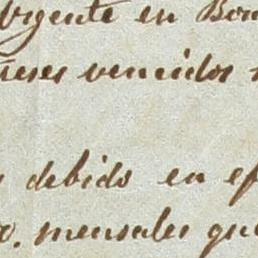 Urgente en Bon
neses vencidos
debido en ef
mensales que